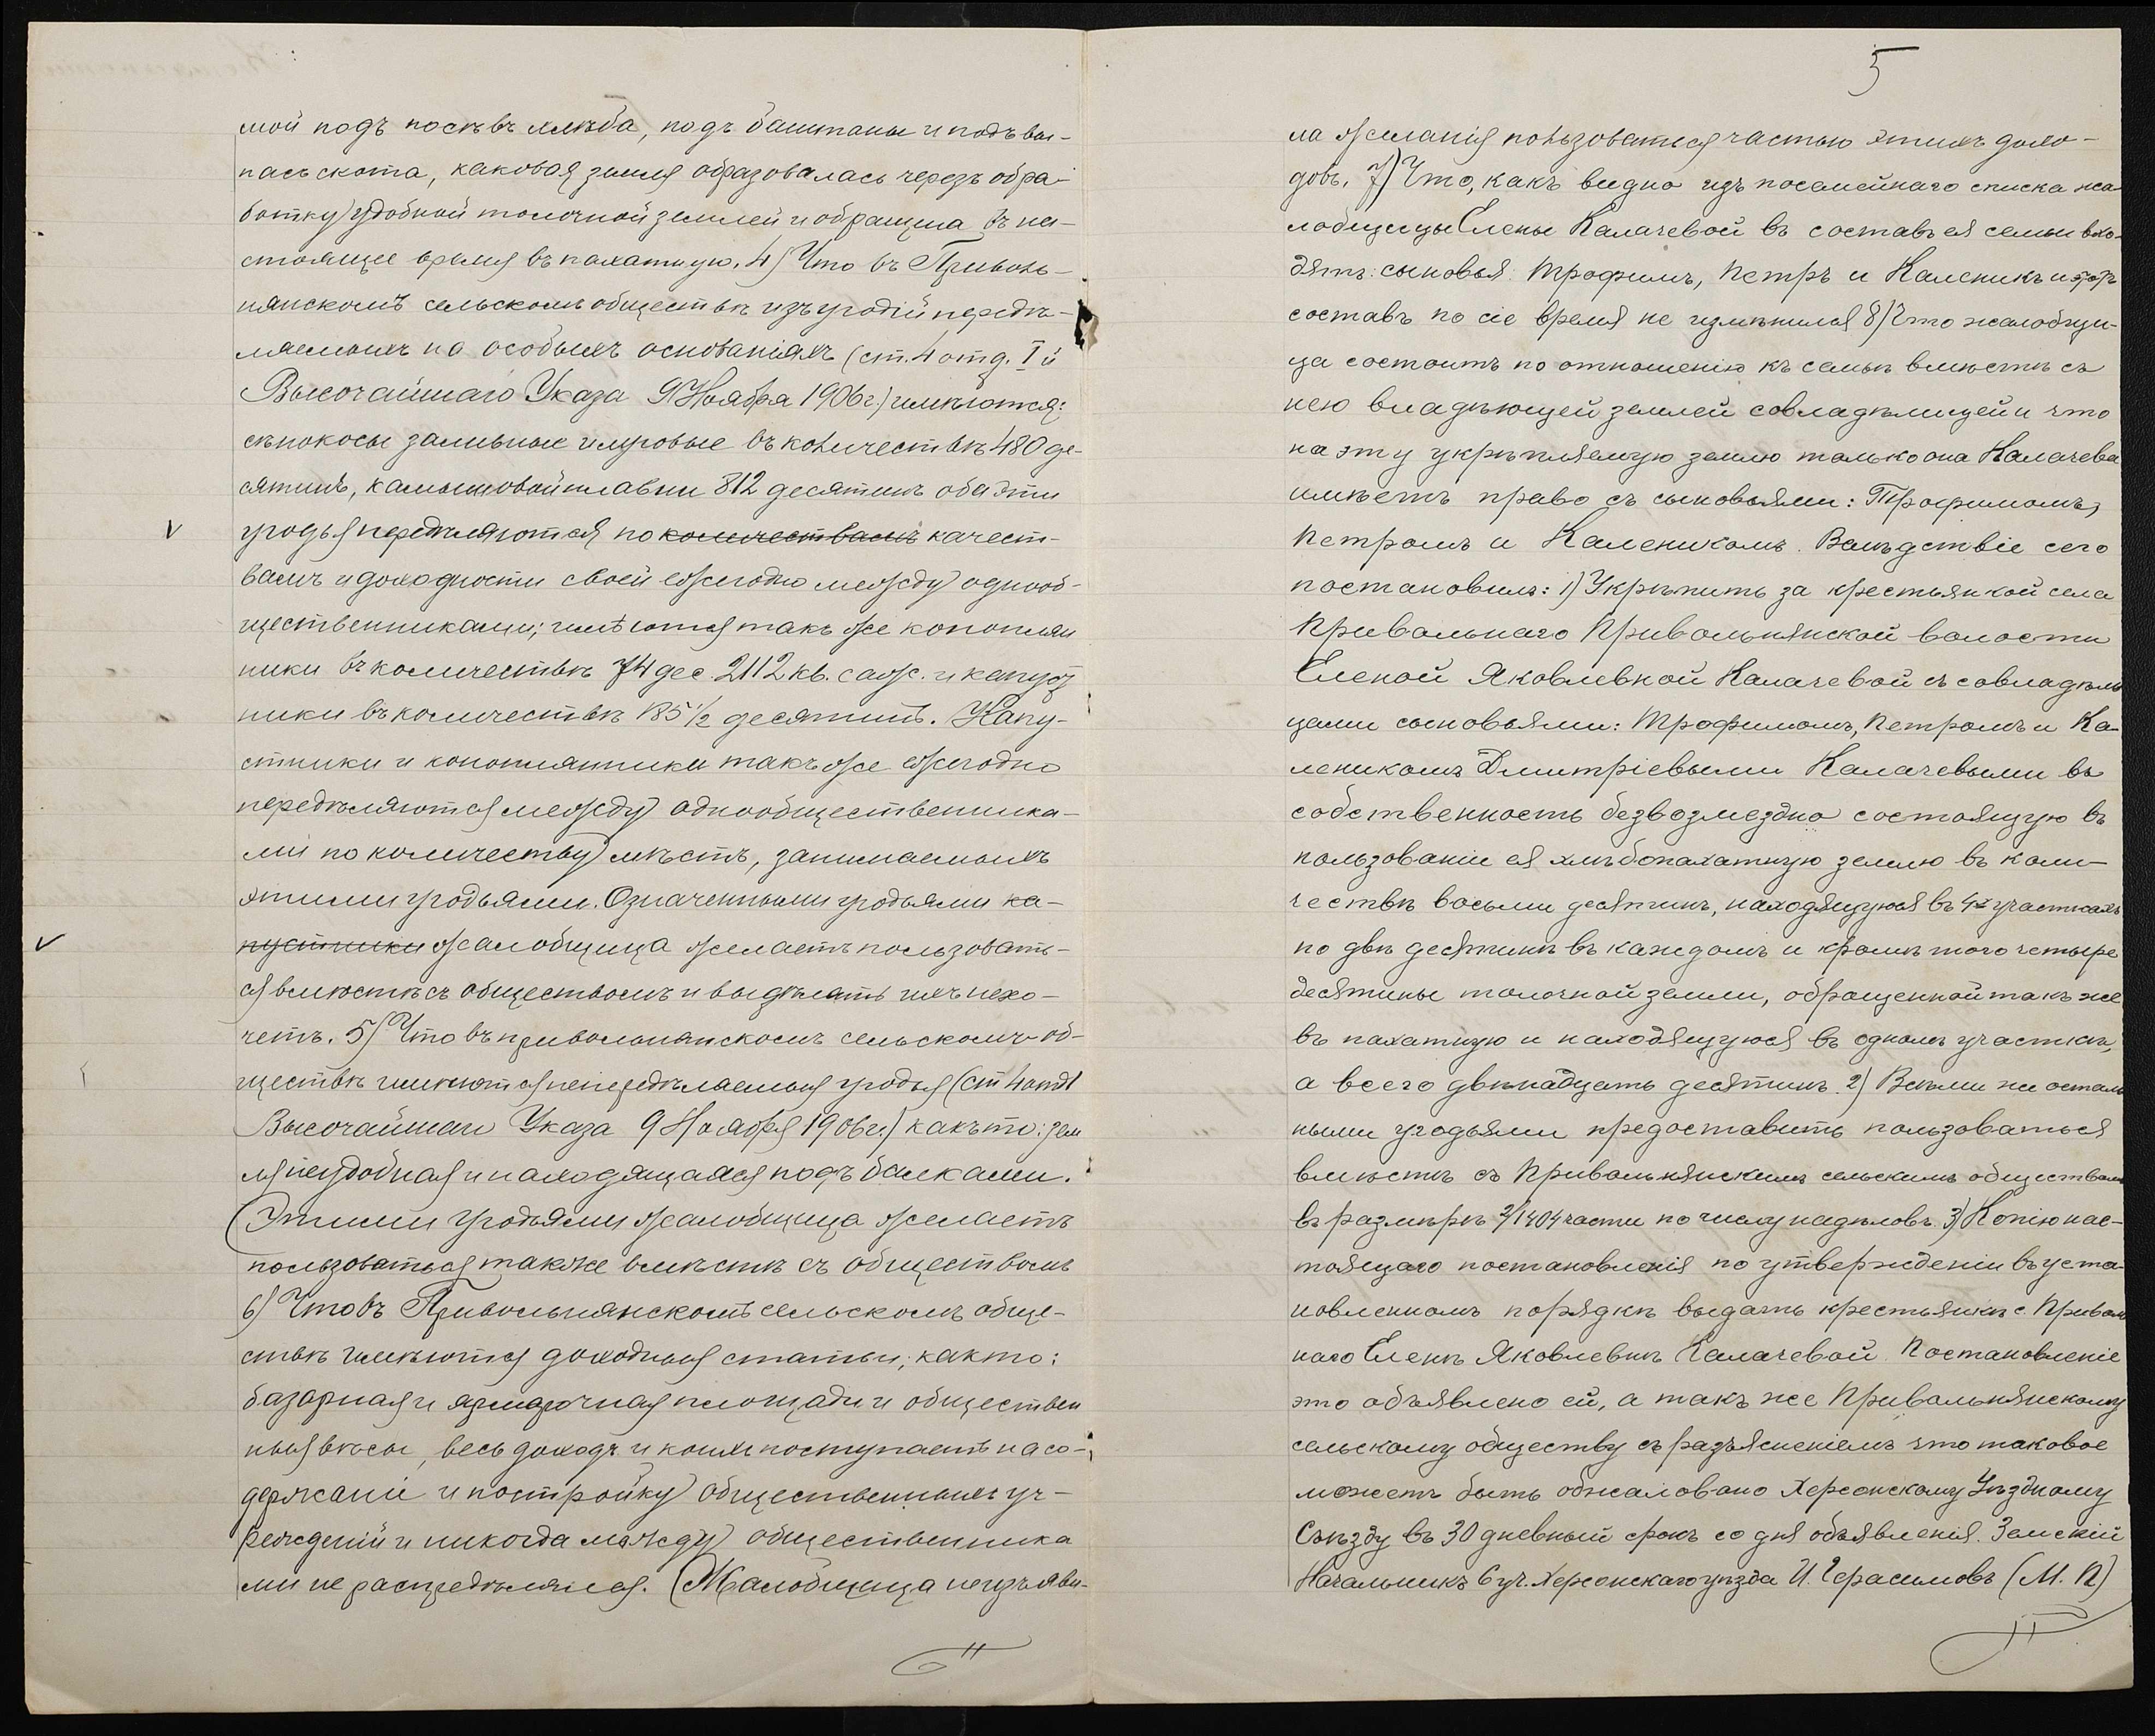 мой подъ посѣвъ хлѣба, подъ баштаны и подъ вы-
пасъ скота, каковая земля образовалась черезъ обра-
ботку удобной толочной землей и обращена въ на-
стоящее время въ пахатную. 4) Что въ Приволь-
нянскомъ сельскомъ обществѣ изъ угодій передѣ-
ляемыхъ на особыхъ основаніяхъ (ст. 4 отд. I й
Высочайшаго Указа 9 Ноября 1906 г.) имѣются:
сѣнокосы заливные и луговые въ количествѣ 480 де-
сятинъ, камышовой плавни 812 десятинъ оба эти
угодья передѣляются по количествамъ качест-
вамъ и доходности своей ежегодно между однооб-
щественниками; имѣются такъ же конопляни
ники въ количествѣ 74 дес. 2112 кв. саж. и капуст
ники въ количествѣ 185 1/2 десятинъ. Капу-
стники и коноплянники такъ же ежегодно
передѣляются между однообщественника-
ми по количеству мѣстъ, занимаемыхъ
этими угодьями. Означенными угодьями ка-
пустники жалобщица желаетъ пользовать-
ся вмѣстѣ съ обществомъ и выдѣлять ихъ не хо-
четъ. 5) Что въ привольнянскомъ сельскомъ об-
ществѣ имѣются непередѣляемыя угодья (ст 4 отд I
Высочайшаго Указа 9 Ноября 1906 г.) какъ то: зем
ля неудобная и находящаяся подъ балками.
Этими угодьями жалобщица желаетъ
пользоваться также вмѣстѣ съ обществомъ
6) Что въ Привольнянскомъ сельскомъ обще-
ствѣ имѣются доходныя статьи, както:
базарная и ярмарочная площади и обществен
ныя вѣсы, весь доходъ и коихъ поступаетъ на со-
держаніе и постройку общественныхъ уч-
режденій и никогда между общественника
ми не распредѣлялся. Жалобщица не изъяви-
5
ла желанія пользоваться частью этихъ дохо-
довъ. 7) Что, какъ видно изъ посемейнаго списка жа-
лобщицы Елены Калачевой въ составъ ея семьи вхо-
дятъ: сыновья: Трофимъ, Петръ и Каленикъ и этотъ
составъ по сіе время не измѣнился 8) Что жалобщи-
ца состоитъ по отношенію къ семьѣ вмѣстѣ съ
нею владѣющей землей совладѣлицей и что
на эту укрѣпляемую землю только она Калачева
имѣетъ право съ сыновьями: Трофимомъ,
Петромъ и Калеником.. Вслѣдствіе сего
постановилъ: 1) Укрѣпить за крестьянкой села
Привольнаго Привольнянской волости
Еленой Яковлевной Калачевой съ совладѣль
цами сыновьями: Трофимомъ, Петромъ и Ка-
леникомъ Дмитріевыми Калачевыми въ
собственность безвозмездно состоящую въ
пользованіи ея хлѣбопахатную землю въ коли-
чествѣ восьми десятинъ, находящуюся въ 4х участкахъ
по двѣ десятинѣ въ каждомъ и кромѣ того четыре
десятины толочной земли, обращенной такъ же
въ пахатную и находящуюся въ одномъ участкѣ,
а всего двѣнадцать десятинъ. 2) Всѣми же осталь
ными угодьями предоставить пользоваться
вмѣстѣ съ Привольнянскимъ сельскимъ обществомъ
въ размѣрѣ 2/1404 части по числу надѣловъ. 3) Копію нас-
тоящаго постановленія по утвержденіи въ уста-
новленномъ порядкѣ выдать крестьянкѣ с. Приволь
наго Еленѣ Яковлевнѣ Калачевой. Постановленіе
это объявлено ей, а такъ же Привольнянскому
сельскому обществу съ разъясненіемъ что таковое
можетъ быть обжаловано Херсонскому Уѣздному
Съѣзду въ 30 дневный срокъ со дня объявленія. Земскій
Начальникъ 6 уч. Херсонскаго уѣзда И. Герасимовъ (М. П)